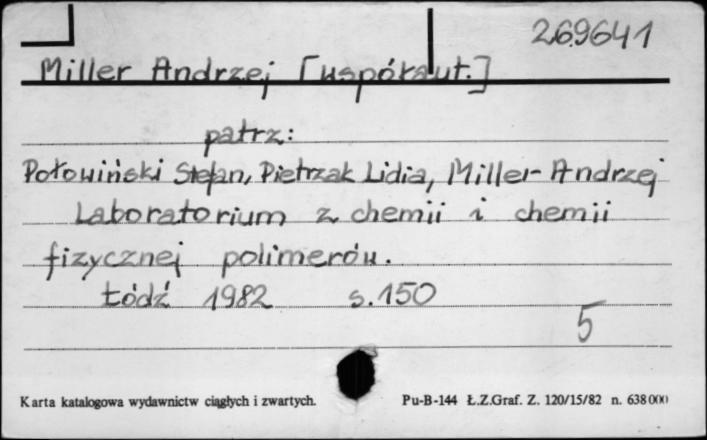 269641
Miller Andrzej [współaut.]
patrz:
Połowiński Stefan, Pietrzak Lidia, Miller-Andrzej
Laboratorium z chemii i chemii
fizycznej polimerów.
Łódź 1982 s.150
5
Karta katalogowa wydawnictw ciągłych i zwartych. Pu-B-144 Ł.Z.Graf. Z. 120/15/82 n. 638000